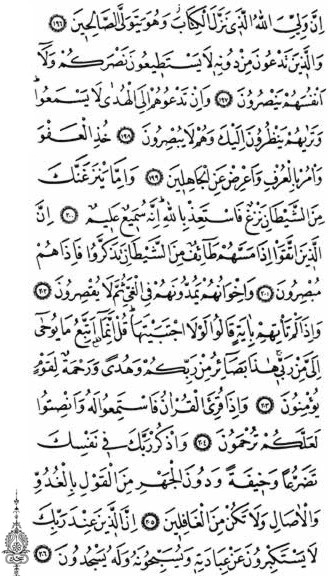 اِنَّ وَلِيِّيَ اللّٰهُ الَّذ۪ي نَزَّلَ الْكِتَابَۘ وَهُوَ يَتَوَلَّى الصَّالِح۪ينَ ﴿١٩٦﴾
وَالَّذ۪ينَ تَدْعُونَ مِنْ دُونِه۪ لَا يَسْتَط۪يعُونَ نَصْرَكُمْ وَلَٓا
اَنْفُسَهُمْ يَنْصُرُونَ ﴿١٩٧﴾ وَاِنْ تَدْعُوهُمْ اِلَى الْهُدٰى لَا يَسْمَعُواۜ
وَتَرٰيهُمْ يَنْظُرُونَ اِلَيْكَ وَهُمْ لَا يُبْصِرُونَ ﴿١٩٨﴾ خُذِ الْعَفْوَ
وَأْمُرْ بِالْعُرْفِ وَاَعْرِضْ عَنِ الْجَاهِل۪ينَ ﴿١٩٩﴾ وَاِمَّا يَنْزَغَنَّكَ
مِنَ الشَّيْطَانِ نَزْغٌ فَاسْتَعِذْ بِاللّٰهِۜ اِنَّهُ سَم۪يعٌ عَل۪يمٌ ﴿٢٠٠﴾ اِنَّ
الَّذ۪ينَ اتَّقَوْا اِذَا مَسَّهُمْ طَٓائِفٌ مِنَ الشَّيْطَانِ تَذَكَّرُوا فَاِذَا هُمْ
مُبْصِرُونَۚ ﴿٢٠١﴾ وَاِخْوَانُهُمْ يَمُدُّونَهُمْ فِي الْغَيِّ ثُمَّ لَا يُقْصِرُونَ ﴿٢٠٢﴾
وَاِذَا لَمْ تَأْتِهِمْ بِاٰيَةٍ قَالُوا لَوْلَا اجْتَبَيْتَهَاۜ قُلْ اِنَّمَٓا اَتَّبِعُ مَا يُوحٰٓى
اِلَيَّ مِنْ رَبّ۪يۚ هٰذَا بَصَٓائِرُ مِنْ رَبِّكُمْ وَهُدًى وَرَحْمَةٌ لِقَوْمٍ
يُؤْمِنُونَ ﴿٢٠٣﴾ وَاِذَا قُرِئَ الْقُرْاٰنُ فَاسْتَمِعُوا لَهُ وَاَنْصِتُوا
لَعَلَّكُمْ تُرْحَمُونَ ﴿٢٠٤﴾ وَاذْكُرْ رَبَّكَ ف۪ي نَفْسِكَ
تَضَرُّعًا وَخ۪يفَةً وَدُونَ الْجَهْرِ مِنَ الْقَوْلِ بِالْغُدُوِّ
وَالْاٰصَالِ وَلَا تَكُنْ مِنَ الْغَافِل۪ينَ ﴿٢٠٥﴾ اِنَّ الَّذ۪ينَ عِنْدَ رَبِّكَ
لَا يَسْتَكْبِرُونَ عَنْ عِبَادَتِه۪ وَيُسَبِّحُونَهُ وَلَهُ يَسْجُدُونَ ﴿٢٠٦﴾